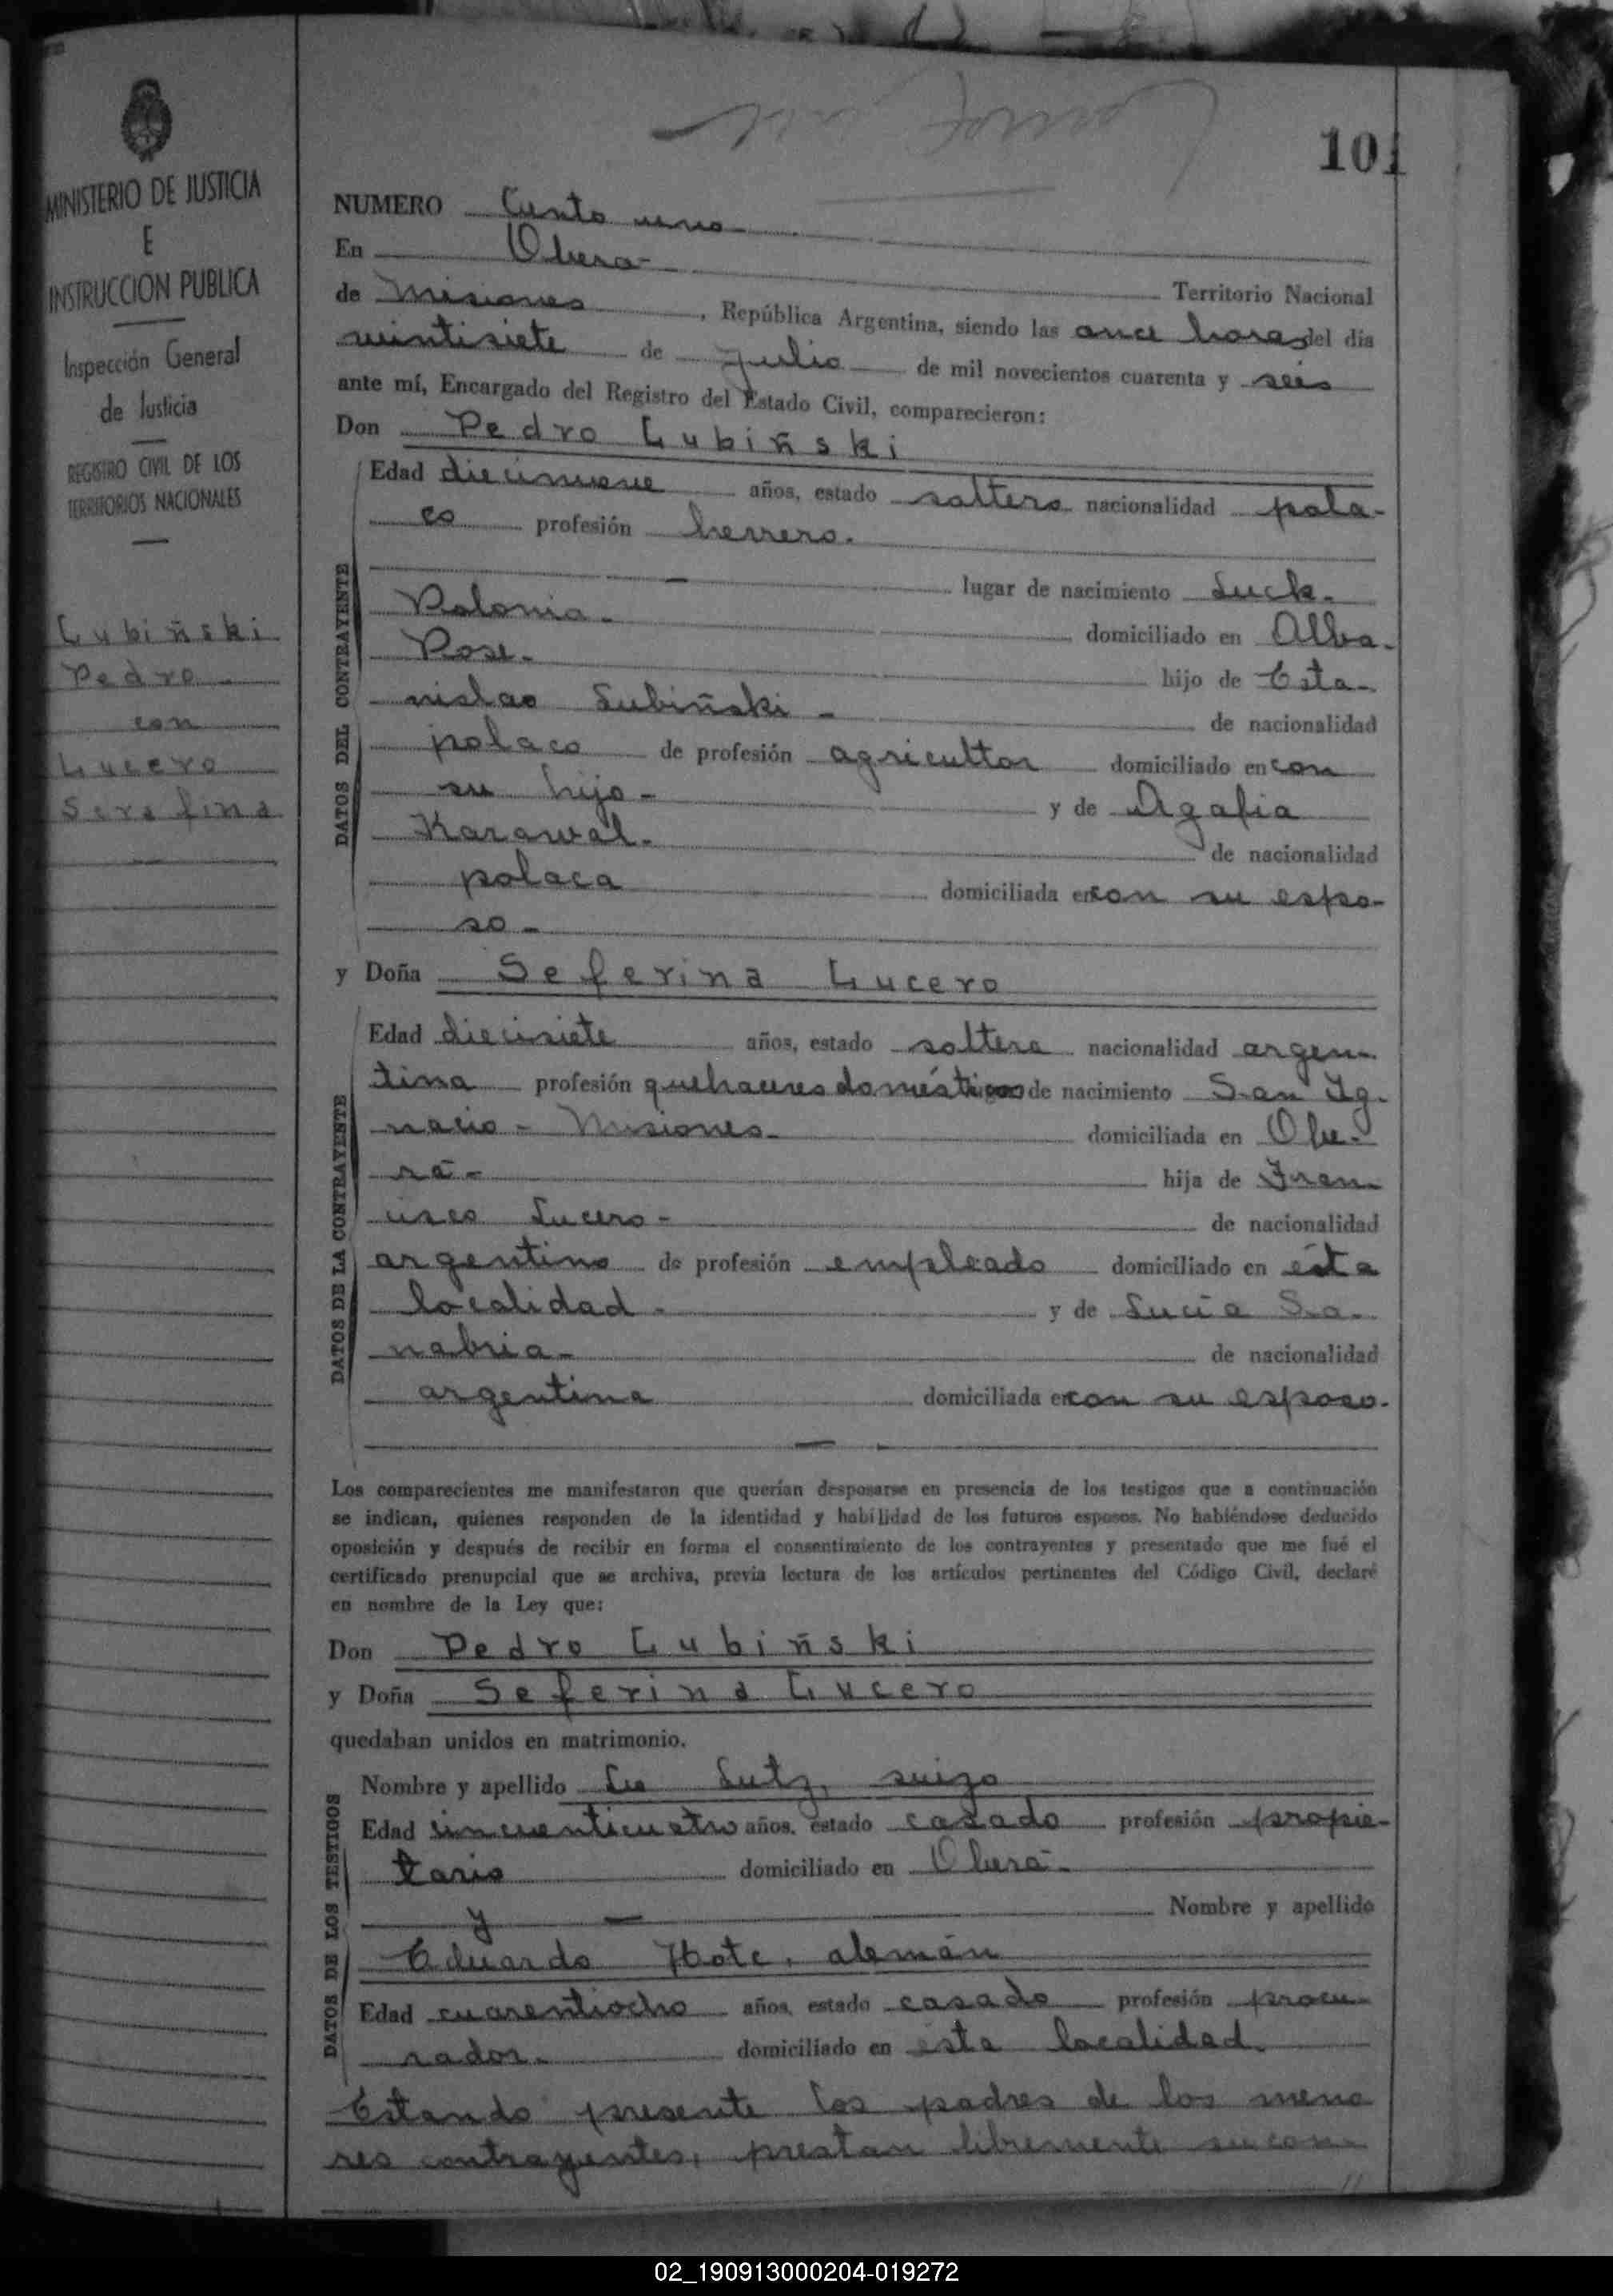 MINISTERIO DE JUSTICIA
E
INSTRUCCION PUBLICA
Inspección General
de Justicia
REGISTRO CIVIL DE LOS
TERRITORIOS NACIONALES
Lubiñski
Pedro
con
Lucero
Serafina
101
NUMERO Ciento uno
En Oberá
de Misiones Territorio Nacional
, República Argentina, siendo las once horas del día
veintisiete de julio de mil novecientos cuarenta y seis
ante mí, Encargado del Registro del Estado Civil, comparecieron:
Don Pedro Lubiñski
DATOS DEL CONTRAYENTE
Edad diecinueve años, estado soltero nacionalidad pola-
co profesión herrero.
lugar de nacimiento Luck-
Polonia- domiciliado en Alba-
Pose- hijo de Esta-
nislao Lubiñski- de nacionalidad
polaco de profesión agricultor domiciliado en con
su hijo- y de Agafia
Karawal- de nacionalidad
polaca domiciliada en con su espo-
so-
y Doña Seferina Lucero
DATOS DE LA CONTRAYENTE
Edad diecisiete años, estado soltera nacionalidad argen-
tina profesión quehaceres domésticos de nacimiento San Ig-
nacio- Misiones- domiciliada en Obe-
rá- hija de Fran-
cisco Lucero- de nacionalidad
argentino de profesión empleado domiciliado en ésta
localidad- y de Lucía Sa-
nabria- de nacionalidad
argentina domiciliada en con su esposo-
Los comparecientes me manifestaron que querían desposarse en presencia de los testigos que a continuación
se indican, quienes responden de la identidad y habilidad de los futuros esposos. No habiéndose deducido
oposición y después de recibir en forma el consentimiento de los contrayentes y presentado que me fué el
certificado prenupcial que se archiva, previa lectura de los artículos pertinentes del Código Civil, declaré
en nombre de la Ley que:
Don Pedro Lubiñski
y Doña Seferina Lucero
quedaban unidos en matrimonio.
DATOS DE LOS TESTIGOS
Nombre y apellido Lutz, suizo
Edad cincuenticuatro años, estado casado profesión propie-
tario domiciliado en Oberá-
y - Nombre y apellido
Eduardo Hote, alemán
Edad cuarentiocho años, estado casado profesión procu-
rador- domiciliado en ésta localidad.
Estando presente los padres de los meno
res contrayentes, prestan libremente su con-
//
02_190913000204-019272